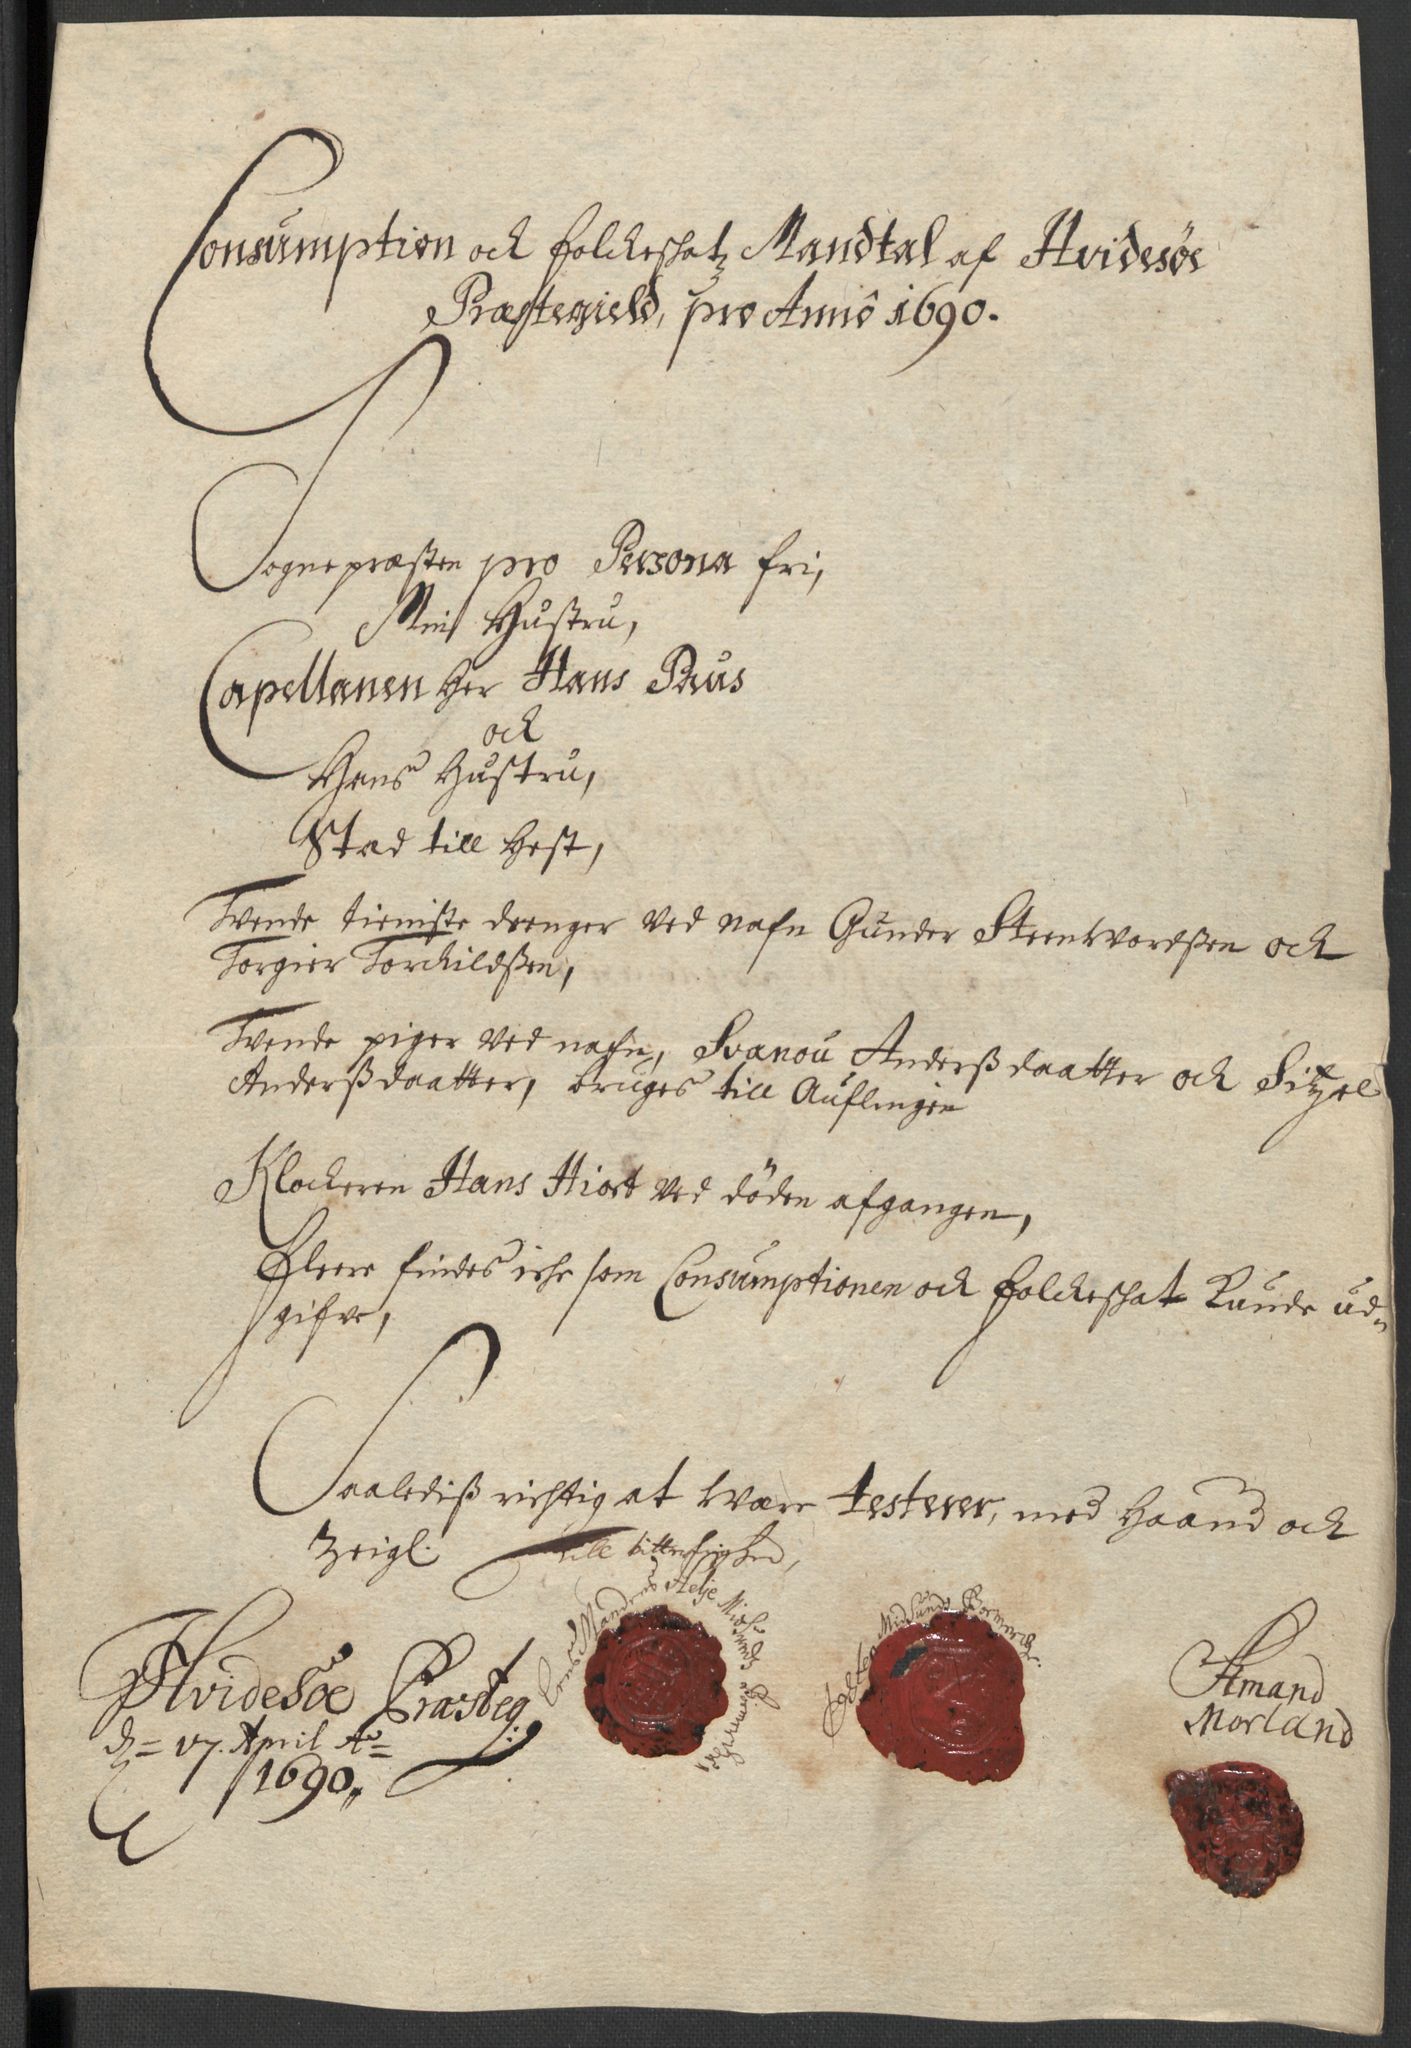 Consumption och folckeshatz Mandtal af Hvidesöe
Præstegield, pro Annô 1690.
Sognepræsten pro Persona fri,
Min Hustru,
Capellanen Her Hans Paus
och
Hans Hustru,
Stad till Hest,
Tvende tieniste drenger ved nafn Gunder Steenwordßen och
Torgier Torchildßen,
Tvende piger ved nafn, Svanou Anderßdaatter och Sitzel
Anderßdaatter, bruges till Auflingen
Klockeren Hans Hiort ved döden afgangen,
Fleere findes iche som Consumptionen och folckeshat kunde ud-
gifve,
Saalediß richtig at være testerer, med Haand och
Zeigl.
Till vitterlighed,
Hvidesöe Præsteg:
d= 17. April Ao=
1690.
Lensmandens Aslje Midsunds
Midsunds Boemerche.
Amand
Morland